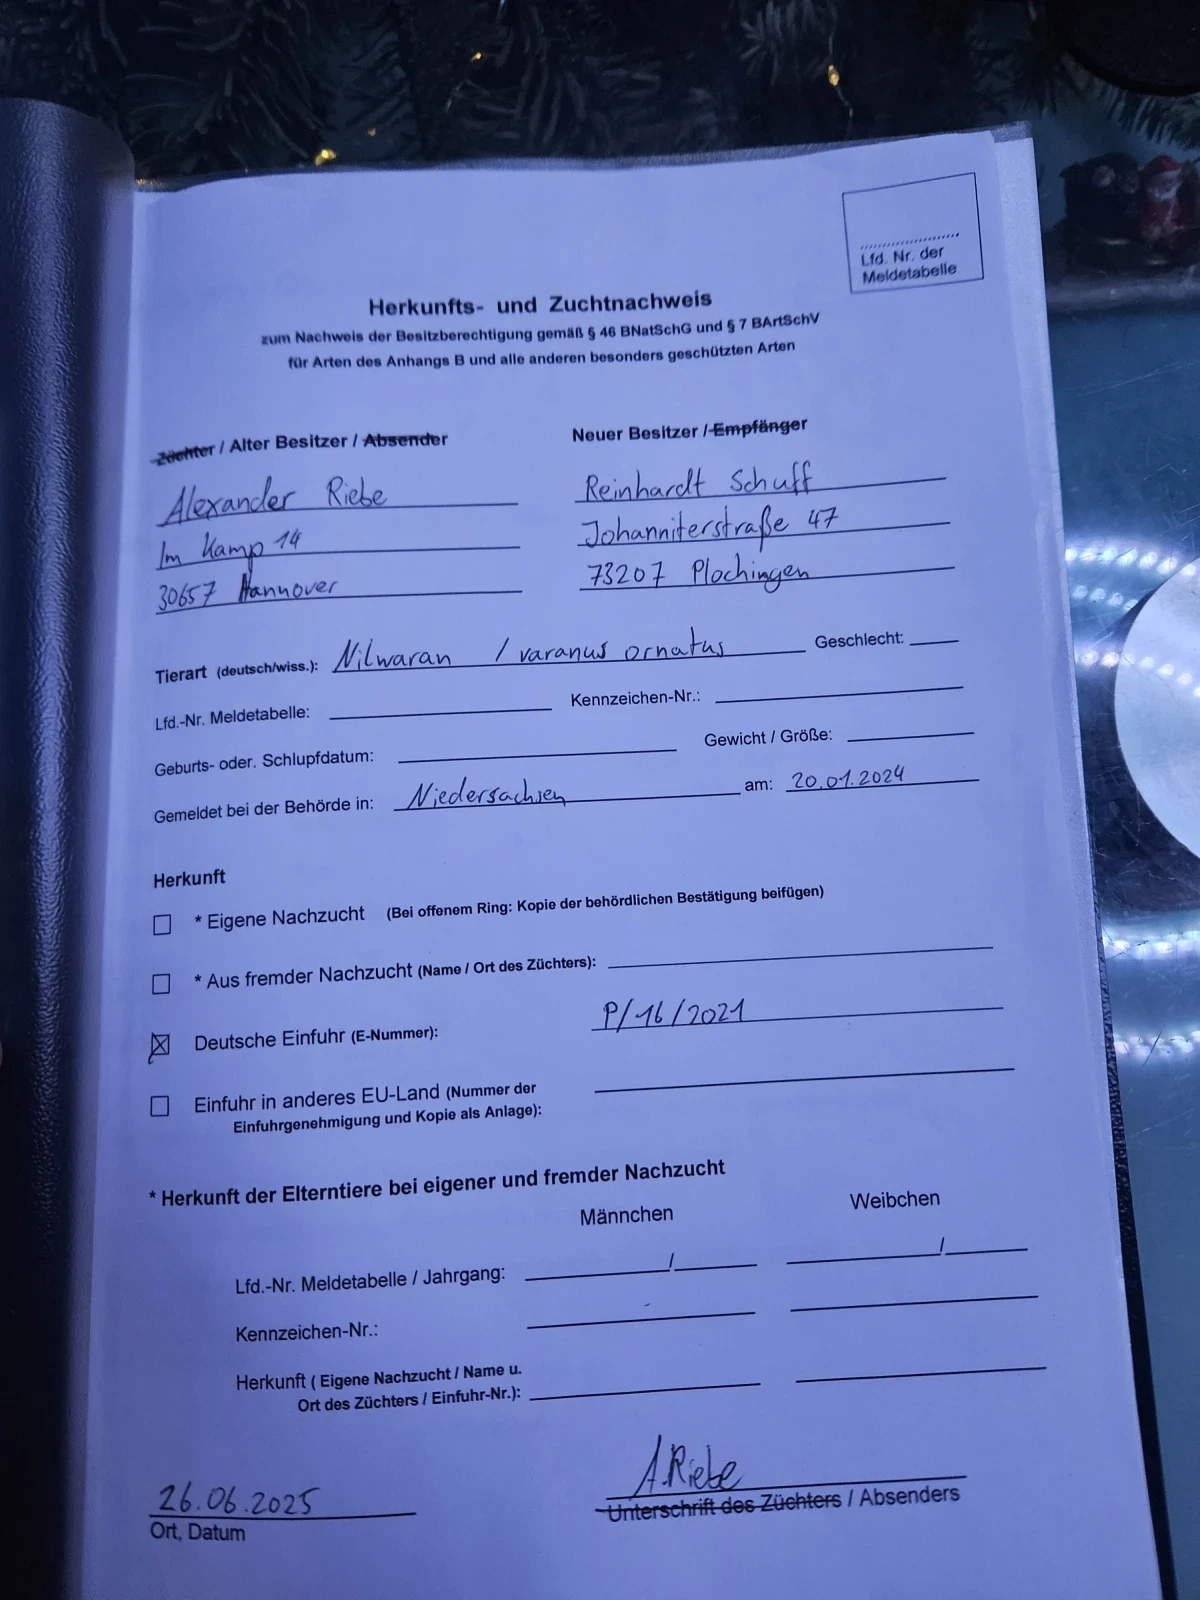 Lfd. Nr. der
Meldetabelle
Herkunfts- und Zuchtnachweis
zum Nachweis der Besitzberechtigung gemäß § 46 BNatSchG und § 7 BArtSchV
für Arten des Anhangs B und alle anderen besonders geschützten Arten
Züchter / Alter Besitzer / Absender
Neuer Besitzer / Empfänger
Alexander Riebe
Im Kamp 14
30657 Hannover
Reinhardt Schuff
Johanniterstraße 47
73207 Plochingen
Tierart (deutsch/wiss.): Nilwaran / varanus ornatus Geschlecht:
Lfd.-Nr. Meldetabelle: Kennzeichen-Nr.:
Geburts- oder. Schlupfdatum: Gewicht / Größe:
Gemeldet bei der Behörde in: Niedersachsen am: 20.01.2024
Herkunft
* Eigene Nachzucht (Bei offenem Ring: Kopie der behördlichen Bestätigung beifügen)
* Aus fremder Nachzucht (Name / Ort des Züchters):
Deutsche Einfuhr (E-Nummer): P/16/2021
Einfuhr in anderes EU-Land (Nummer der
Einfuhrgenehmigung und Kopie als Anlage):
* Herkunft der Elterntiere bei eigener und fremder Nachzucht
Männchen Weibchen
Lfd.-Nr. Meldetabelle / Jahrgang: / /
Kennzeichen-Nr.:
Herkunft ( Eigene Nachzucht / Name u.
Ort des Züchters / Einfuhr-Nr.):
26.06.2025
Ort, Datum
A.Riebe
Unterschrift des Züchters / Absenders